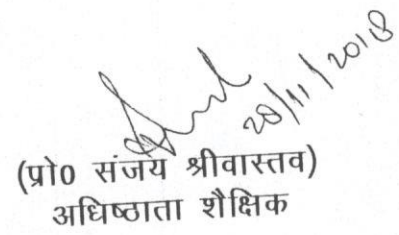 20/11/2018
(प्रो0 संजय श्रीवास्तव)
अधिष्ठाता शैक्षिक